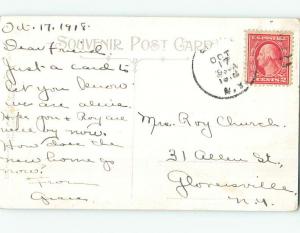 Oct. 17, 1918.
SOUVENIR POST CARD
Dear friend
Just a card to
let you know
we are alive.
Hope you & Roy are
well by now.
How does the
new home go
now?
from
Grace.
OCT
17
1918
N.Y.
2 CENTS 2
Mrs. Roy Church.
31 Allen St,
Gloversville,
N.Y.